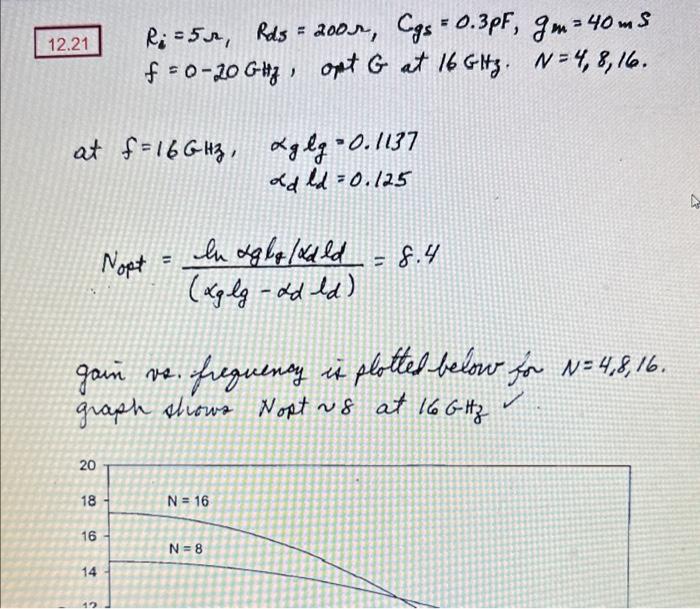 12.21
Ri = 5Ω, Rds = 200Ω, Cgs = 0.3pF, gm = 40 mS
f = 0-20 GHz, opt G at 16 GHz. N = 4, 8, 16.
at f = 16 GHz, αg lg = 0.1137
αd ld = 0.125
Nopt = ln αg lg / αd ld / (αg lg - αd ld) = 8.4
gain vs. frequency is plotted below for N = 4, 8, 16.
graph shows Nopt ~ 8 at 16 GHz ✓.
20
18
N = 16
16
N = 8
14
12